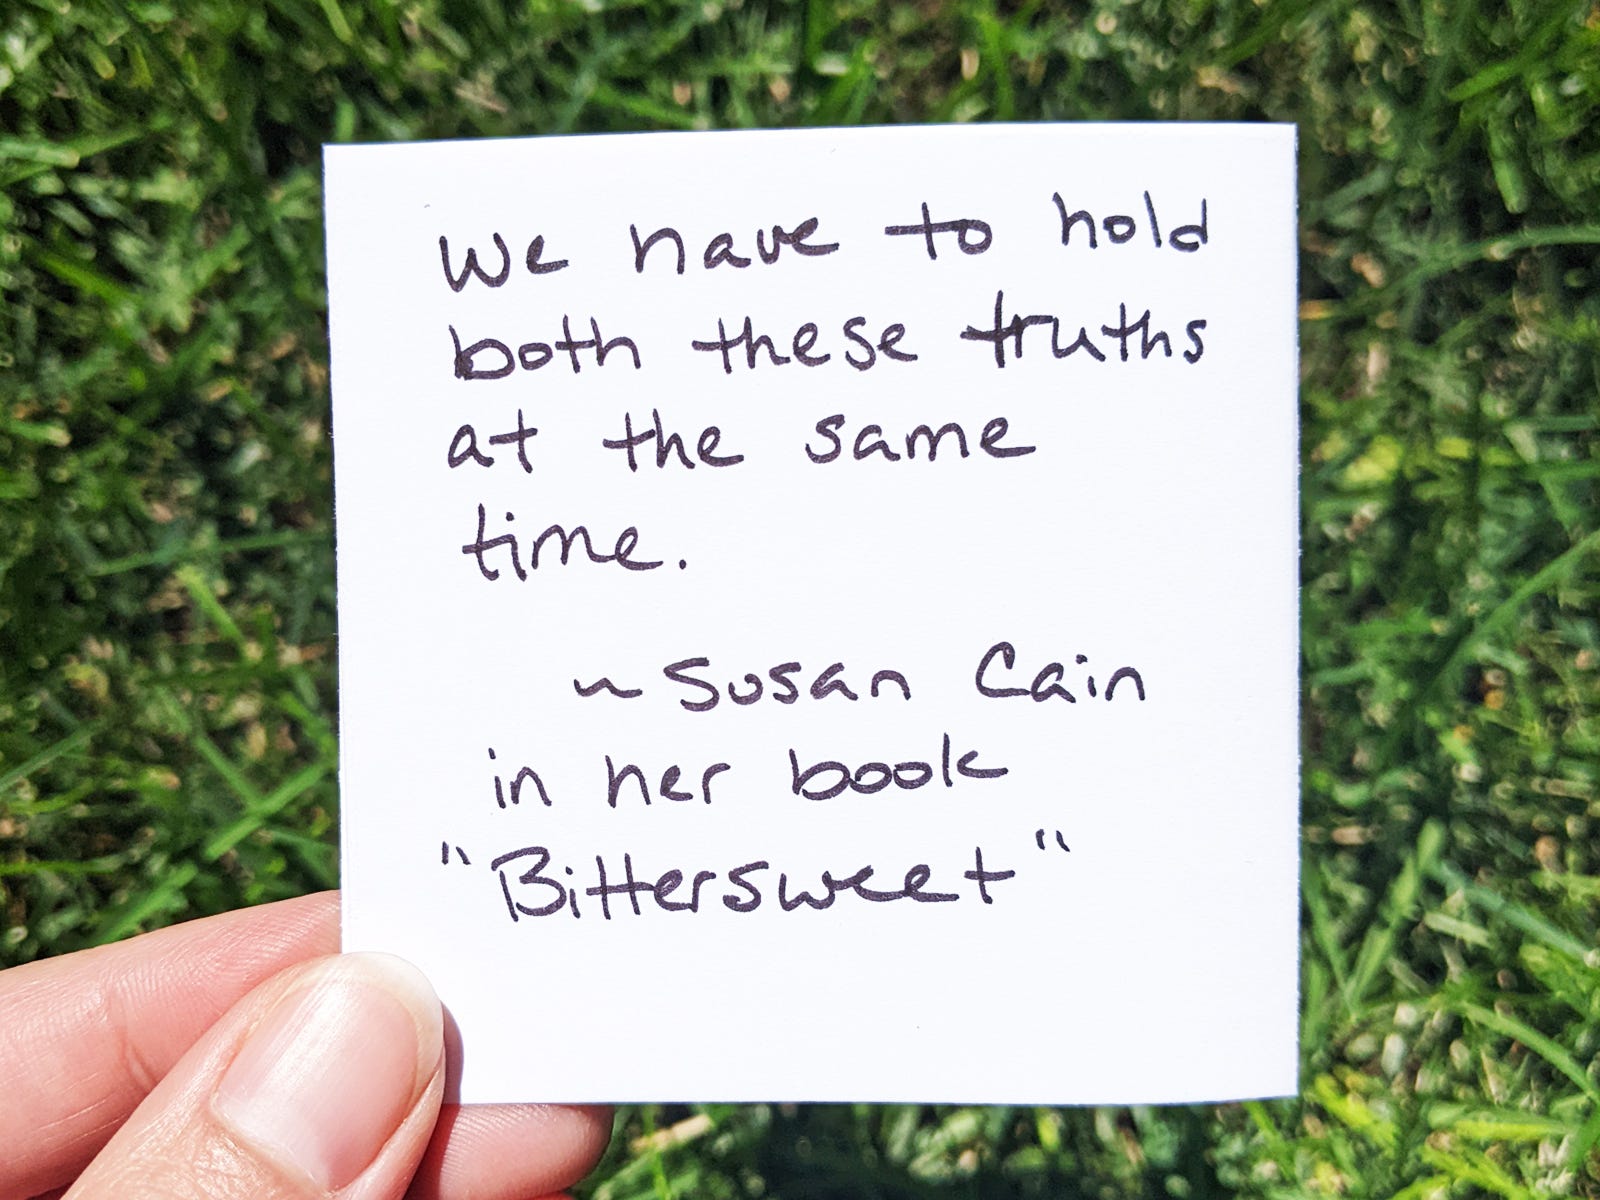 We have to hold
both these truths
at the same
time.
~ Susan Cain
in her book
"Bittersweet"